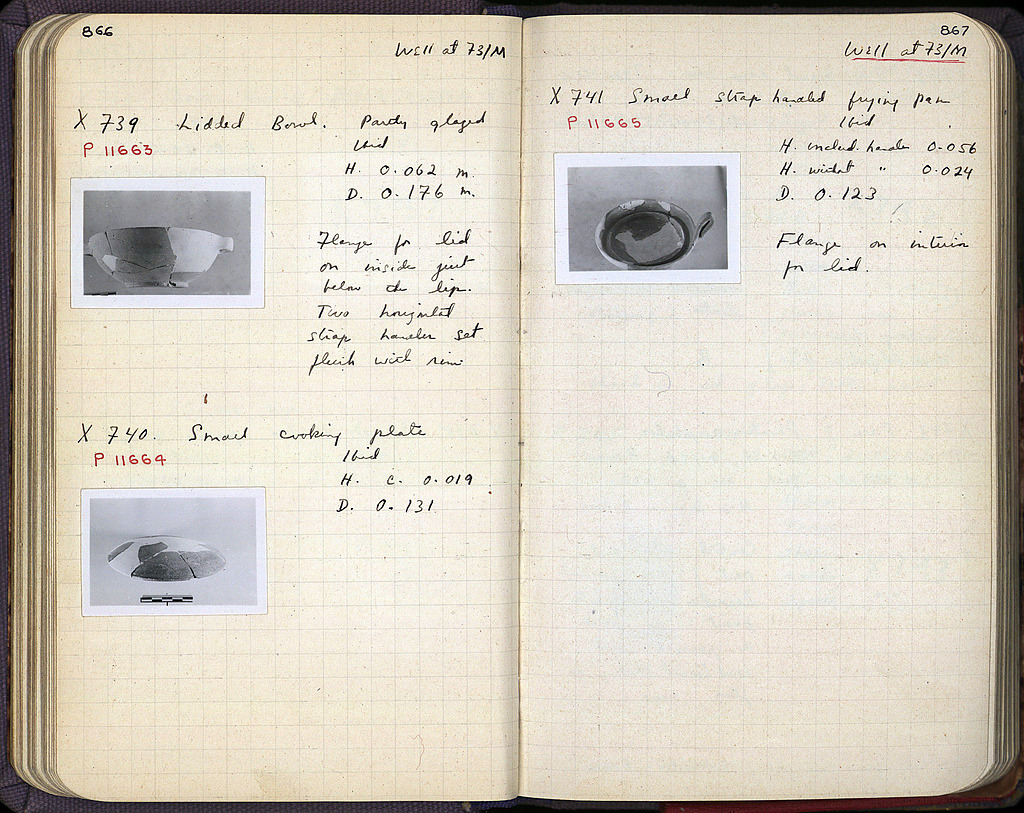 866
Well at 73/M
X 739 Lidded Bowl. Partly glazed
P 11663
Ibid
H. 0.062 m.
D. 0.176 m.
Flange for lid
on inside just
below the lip.
Two horizontal
strap handles set
flush with rim
X 740. Small cooking plate
P 11664
Ibid
H. c. 0.019
D. 0.131
867
Well at 73/M
X 741 Small strap handled frying pan
P 11665
Ibid
H. includ. handle 0.056
H. without " 0.024
D. 0.123
Flange on interior
for lid.